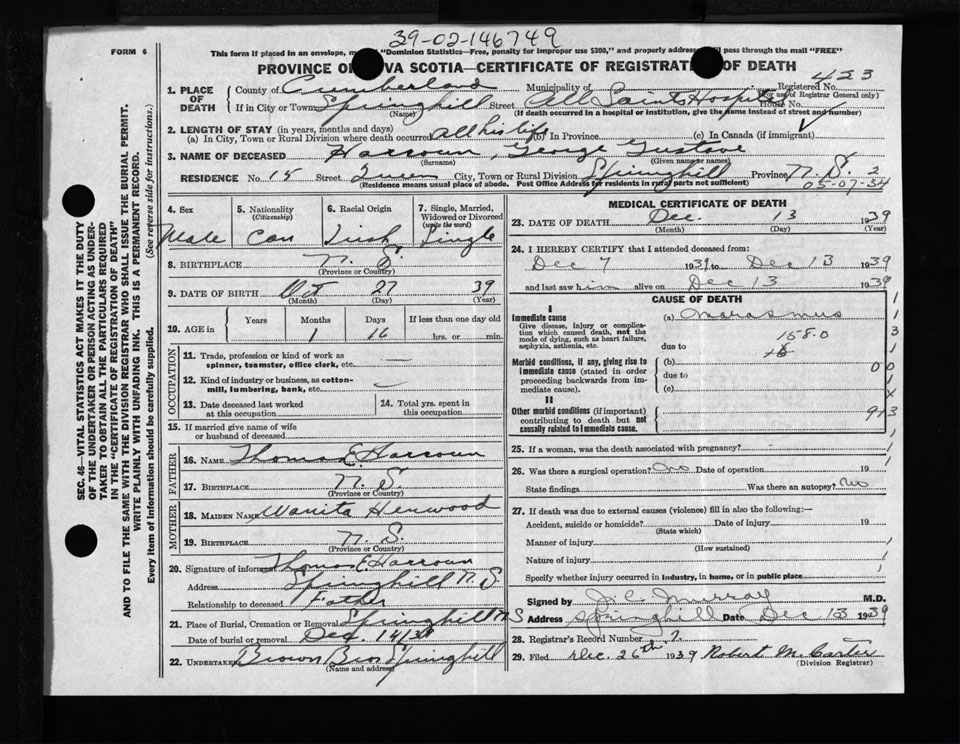 39-02-146749
FORM 6
This form if placed in an envelope, "Dominion Statistics—Free, penalty for improper use $300," and properly address will pass through the mail "FREE"
PROVINCE OF NOVA SCOTIA—CERTIFICATE OF REGISTRATION OF DEATH
423
1. PLACE OF DEATH
County of Cumberland Municipality of Registered No.
(For use of Registrar General only)
If in City or Town Springhill Street All Saints Hospital House No.
(Name) (If death occurred in a hospital or institution, give the name instead of street and number)
2. LENGTH OF STAY (in years, months and days)
(a) In City, Town or Rural Division where death occurred all his life (b) In Province (c) In Canada (if immigrant)
3. NAME OF DECEASED Harroun, George Gustave
(Surname) (Given name or names)
RESIDENCE No. 15 Street Queen City, Town or Rural Division Springhill Province N. S. 2
(Residence means usual place of abode. Post Office Address for residents in rural parts not sufficient)
05-07-34
4. Sex Male
5. Nationality (Citizenship) Can
6. Racial Origin Irish
7. Single, Married, Widowed or Divorced (write the word) Single
8. BIRTHPLACE N. S.
(Province or Country)
9. DATE OF BIRTH Oct 27 39
(Month) (Day) (Year)
10. AGE in Years Months Days If less than one day old
1 16 hrs. or min.
OCCUPATION
11. Trade, profession or kind of work as spinner, teamster, office clerk, etc. —
12. Kind of industry or business, as cotton-mill, lumbering, bank, etc. —
13. Date deceased last worked at this occupation
14. Total yrs. spent in this occupation
15. If married give name of wife or husband of deceased
FATHER
16. NAME Thomas E. Harroun
17. BIRTHPLACE N. S.
(Province or Country)
MOTHER
18. MAIDEN NAME Wanita Henwood
19. BIRTHPLACE N. S.
(Province or Country)
20. Signature of informant Thomas E. Harroun
Address Springhill N. S.
Relationship to deceased Father
21. Place of Burial, Cremation or Removal Springhill N S
Date of burial or removal Dec. 14/39
22. Undertaker Brown Bros Springhill
(Name and address)
MEDICAL CERTIFICATE OF DEATH
23. DATE OF DEATH Dec. 13 1939
(Month) (Day) (Year)
24. I HEREBY CERTIFY that I attended deceased from:
Dec 7 1939 to Dec 13 1939
and last saw him alive on Dec 13 1939
CAUSE OF DEATH
I
Immediate cause (a) Marasmus
Give disease, injury or complication which caused death, not the mode of dying, such as heart failure, asphyxia, asthenia, etc.
158.0
due to
Morbid conditions, if any, giving rise to immediate cause (stated in order proceeding backwards from immediate cause).
(b)
due to
(c)
II
Other morbid conditions (if important) contributing to death but not causally related to immediate cause.
25. If a woman, was the death associated with pregnancy?
26. Was there a surgical operation? No Date of operation 19
State findings Was there an autopsy? No
27. If death was due to external causes (violence) fill in also the following:—
Accident, suicide or homicide? Date of injury 19
(State which)
Manner of injury
(How sustained)
Nature of injury
Specify whether injury occurred in industry, in home, or in public place
Signed by J. C. Murray M.D.
Address Springhill Date Dec 13 1939
28. Registrar's Record Number 7
29. Filed Dec. 26th 1939 Robert M. Carter
(Division Registrar)
SEC. 46—VITAL STATISTICS ACT MAKES IT THE DUTY
OF THE UNDERTAKER OR PERSON ACTING AS UNDER-
TAKER TO OBTAIN ALL THE PARTICULARS REQUIRED
IN THE "CERTIFICATE OF REGISTRATION OF DEATH"
AND TO FILE THE SAME WITH THE DIVISION REGISTRAR WHO SHALL ISSUE THE BURIAL PERMIT.
WRITE PLAINLY WITH UNFADING INK. THIS IS A PERMANENT RECORD.
Every item of information should be carefully supplied. (See reverse side for instructions.)